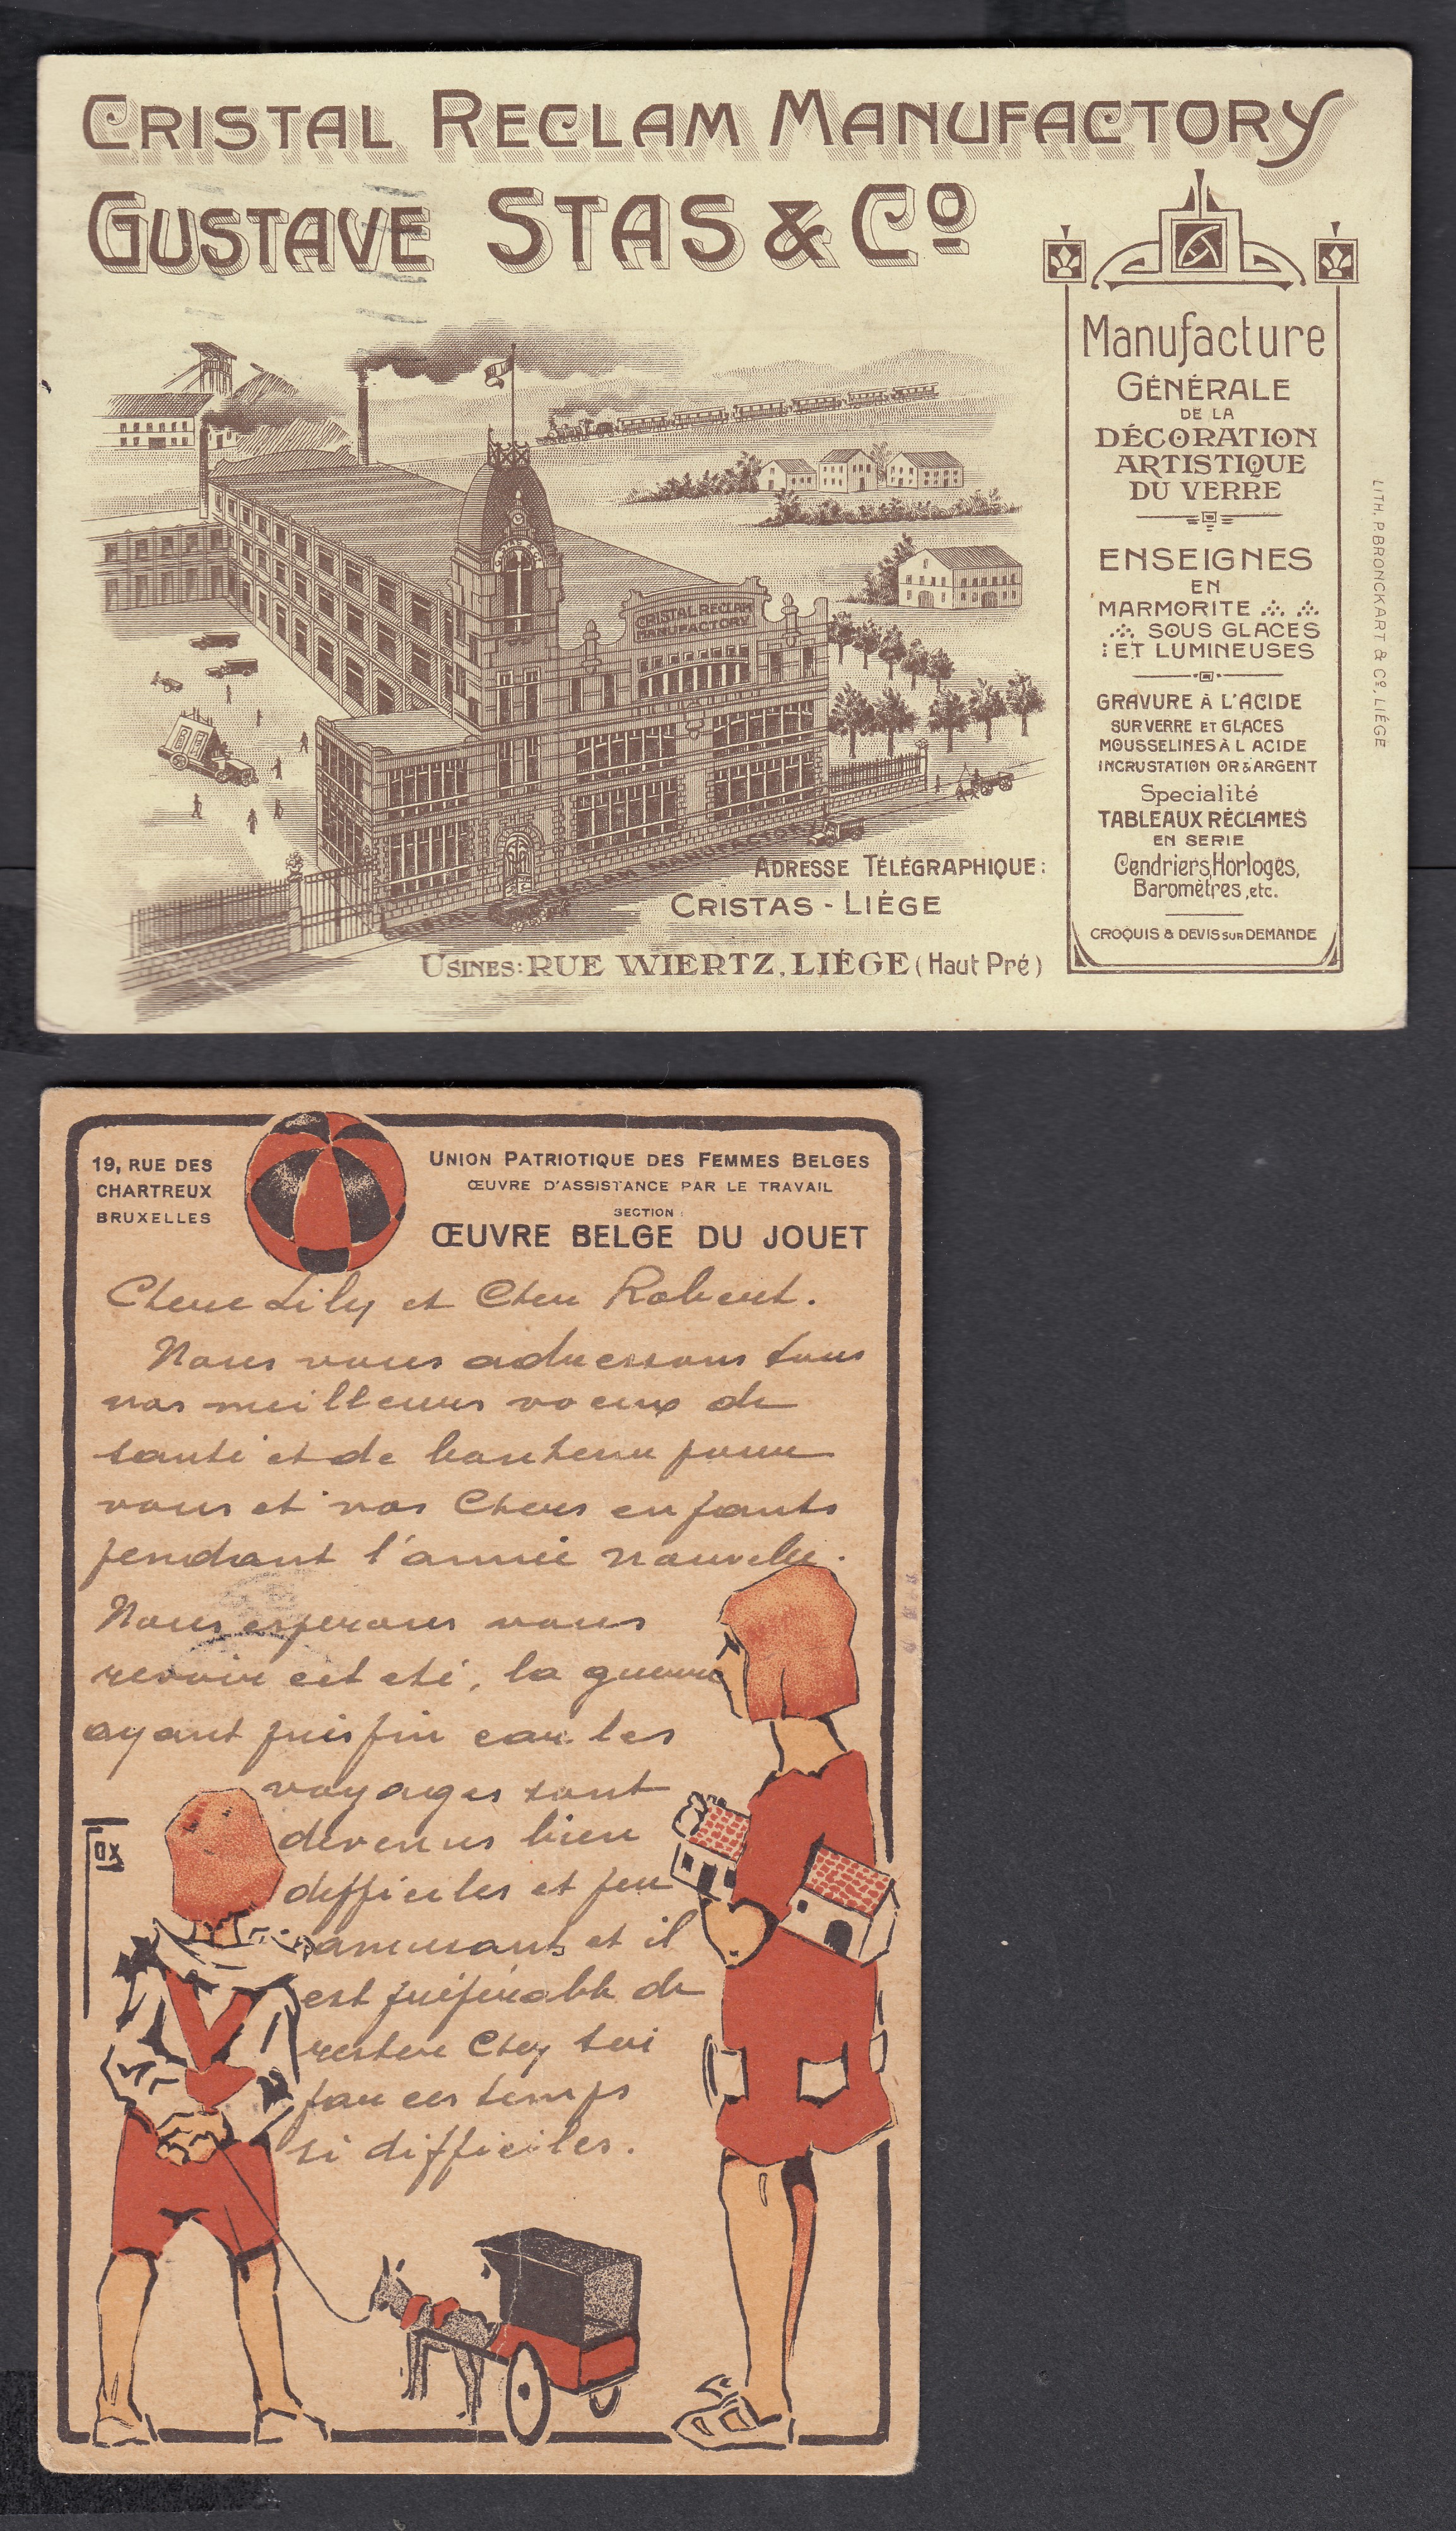 CRISTAL RECLAM MANUFACTORY
GUSTAVE STAS & Cº
CRISTAL RECLAM
MANUFACTORY
CRISTAL RECLAM MANUFACTORY
ADRESSE TÉLÉGRAPHIQUE:
CRISTAS - LIÉGE
USINES: RUE WIERTZ, LIÉGE (Haut Pré)
Manufacture
GÉNÉRALE
DE LA
DÉCORATION
ARTISTIQUE
DU VERRE
ENSEIGNES
EN
MARMORITE
SOUS GLACES
ET LUMINEUSES
GRAVURE À L'ACIDE
SUR VERRE ET GLACES
MOUSSELINES À L ACIDE
INCRUSTATION OR & ARGENT
Specialité
TABLEAUX RÉCLAMES
EN SERIE
Cendriers, Horloges,
Baromètres, etc.
CROQUIS & DEVIS SUR DEMANDE
LITH. P. BRONCKART & Cº, LIÉGE
19, RUE DES
CHARTREUX
BRUXELLES
UNION PATRIOTIQUE DES FEMMES BELGES
ŒUVRE D'ASSISTANCE PAR LE TRAVAIL
SECTION :
ŒUVRE BELGE DU JOUET
Chere Lily et Cher Robert.
Nous vous adressons tous
nos meilleurs voeux de
santé et de bonheur pour
vous et vos Chers enfants
pendant l'année nouvelle.
Nous esperons vous
revoir cet eté, la guerre
ayant pris fin car les
voyages sont
devenus bien
difficiles et peu
amusants et il
est préférable de
rester Chez soi
par ces temps
si difficiles.